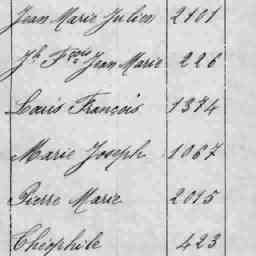 Jean Marie Julien 2101
Jh Fçois Jean Marie 226
Louis François 1374
Marie Joseph 1067
Pierre Marie 2015
Théophile 423